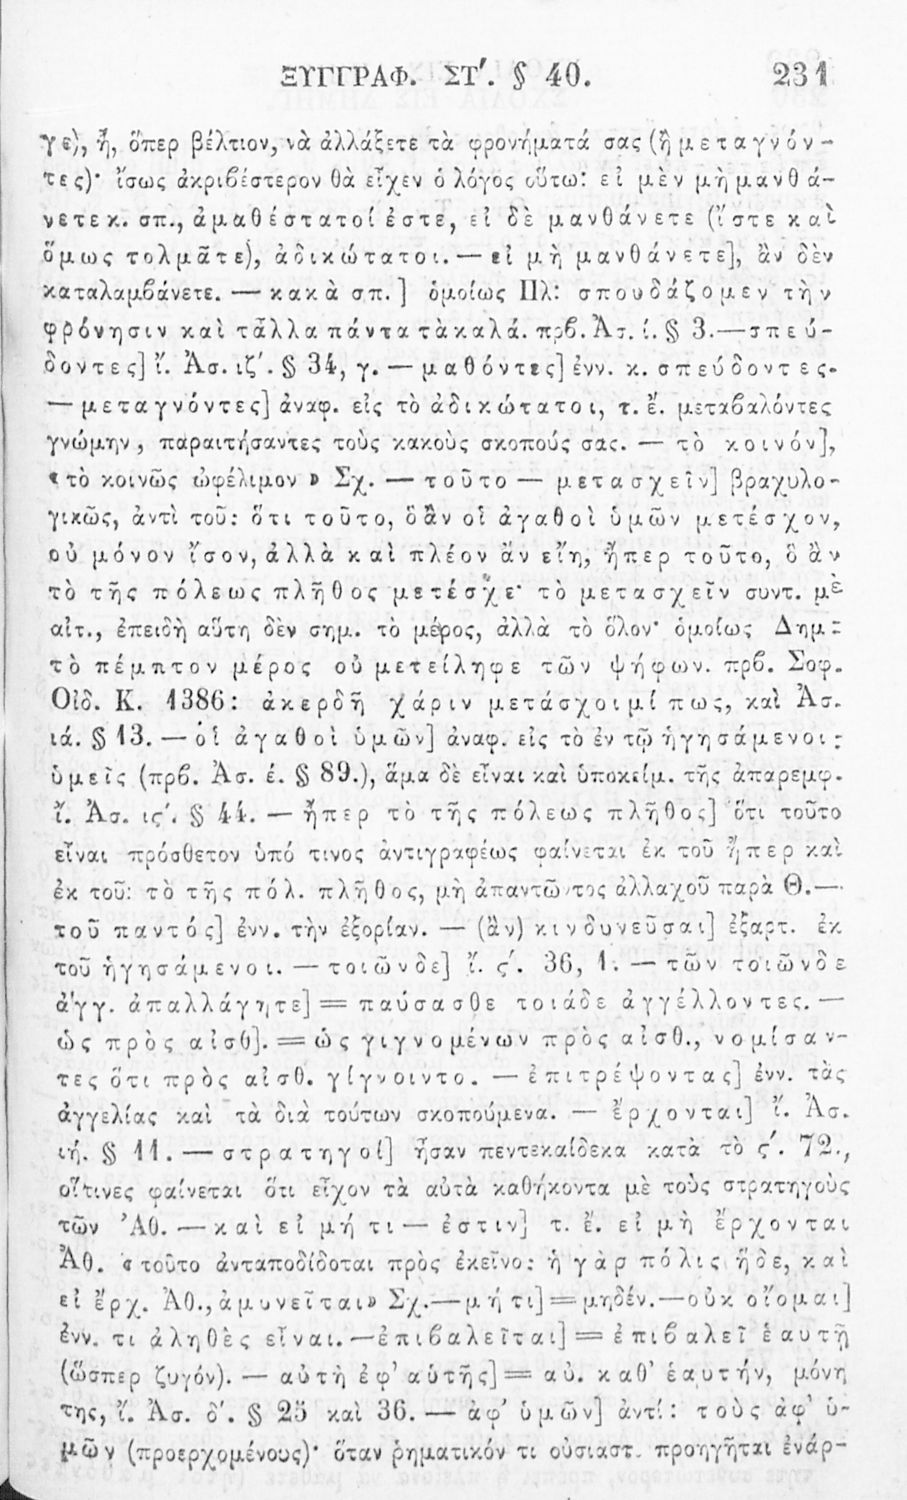 ΞΥΓΓΡΑΦ. ΣΤ΄. § 40. 231
γε), ἤ, ὅπερ βέλτιον, νὰ ἀλλάξετε τὰ φρονήματά σας (ἢ μεταγνόν-
τες)· ἴσως ἀκριβέστερον θὰ εἶχεν ὁ λόγος οὕτω: εἰ μὲν μὴ μανθά-
νετε κ. σπ., ἀμαθέστατοί ἐστε, εἰ δὲ μανθάνετε (ἴστε καὶ
ὅμως τολμᾶτε), ἀδικώτατοι. — εἰ μὴ μανθάνετε], ἂν δὲν
καταλαμβάνετε. — κακὰ σπ.] ὁμοίως Πλ: σπουδάζομεν τὴν
φρόνησιν καὶ τἆλλα πάντα τὰ καλά. πρβ. Ἀσ. ί. § 3. — σπεύ-
δοντες] ἴ. Ἀσ. ιζ΄. § 34, γ. — μαθόντες] ἐνν. κ. σπεύδοντες.
— μεταγνόντες] ἀναφ. εἰς τὸ ἀδικώτατοι, τ. ἔ. μεταβαλόντες
γνώμην, παραιτήσαντες τοὺς κακοὺς σκοπούς σας. — τὸ κοινόν],
«τὸ κοινῶς ὠφέλιμον» Σχ. — τοῦτο — μετασχεῖν] βραχυλο-
γικῶς, ἀντὶ τοῦ: ὅτι τοῦτο, ὃ ἂν οἱ ἀγαθοὶ ὑμῶν μετέσχον,
οὐ μόνον ἴσον, ἀλλὰ καὶ πλέον ἂν εἴη, ἤπερ τοῦτο, ὃ ἂν
τὸ τῆς πόλεως πλῆθος μετέσχε· τὸ μετασχεῖν συντ. μὲ
αἰτ., ἐπειδὴ αὕτη δὲν σημ. τὸ μέρος, ἀλλὰ τὸ ὅλον· ὁμοίως Δημ:
τὸ πέμπτον μέρος οὐ μετείληφε τῶν ψήφων. πρβ. Σοφ.
Οἰδ. Κ. 1386: ἀκερδῆ χάριν μετάσχοιμί πως, καὶ Ἀσ.
ιά. § 13. — οἱ ἀγαθοὶ ὑμῶν] ἀναφ. εἰς τὸ ἐν τῷ ἡγησάμενοι:
ὑμεῖς (πρβ. Ἀσ. έ. § 89.), ἅμα δὲ εἶναι καὶ ὑποκείμ. τῆς ἀπαρεμφ.
ἴ. Ἀσ. ις΄. § 44. — ἤπερ τὸ τῆς πόλεως πλῆθος] ὅτι τοῦτο
εἶναι πρόσθετον ὑπό τινος ἀντιγραφέως φαίνεται ἐκ τοῦ ἤπερ καὶ
ἐκ τοῦ: τὸ τῆς πόλ. πλῆθος, μὴ ἀπαντῶντος ἀλλαχοῦ παρὰ Θ. —
τοῦ παντός] ἐνν. τὴν ἐξορίαν. — (ἂν) κινδυνεῦσαι] ἐξαρτ. ἐκ
τοῦ ἡγησάμενοι. — τοιῶνδε] ἴ. ς΄. 36, 1. — τῶν τοιῶνδε
ἀγγ. ἀπαλλάγητε] = παύσασθε τοιάδε ἀγγέλλοντες. —
ὡς πρὸς αἰσθ]. = ὡς γιγνομένων πρὸς αἰσθ., νομίσαν-
τες ὅτι πρὸς αἰσθ. γίγνοιντο. — ἐπιτρέψοντας] ἐνν. τὰς
ἀγγελίας καὶ τὰ διὰ τούτων σκοπούμενα. — ἔρχονται] ἴ. Ἀσ.
ιή. § 11. — στρατηγοί] ἦσαν πεντεκαίδεκα κατὰ τὸ ς΄. 72.,
οἵτινες φαίνεται ὅτι εἶχον τὰ αὐτὰ καθήκοντα μὲ τοὺς στρατηγοὺς
τῶν Ἀθ. — καὶ εἰ μή τι — ἐστιν] τ. ἔ. εἰ μὴ ἔρχονται
Ἀθ. «τοῦτο ἀνταποδίδοται πρὸς ἐκεῖνο: ἡ γὰρ πόλις ἥδε, καὶ
εἰ ἔρχ. Ἀθ., ἀμυνεῖται» Σχ. — μή τι] = μηδέν. — οὐκ οἴομαι]
ἐνν. τι ἀληθὲς εἶναι. — ἐπιβαλεῖται] = ἐπιβαλεῖ ἑαυτῇ
(ὥσπερ ζυγόν). — αὐτὴ ἐφ’ αὑτῆς] = αὐ. καθ’ ἑαυτήν, μόνη
της, ἴ. Ἀσ. δ΄. § 25 καὶ 36. — ἀφ’ ὑμῶν] ἀντί: τοὺς ἀφ’ ὑ-
μῶν (προερχομένους)· ὅταν ῥηματικόν τι οὐσιαστ. προηγῆται ἐνάρ-